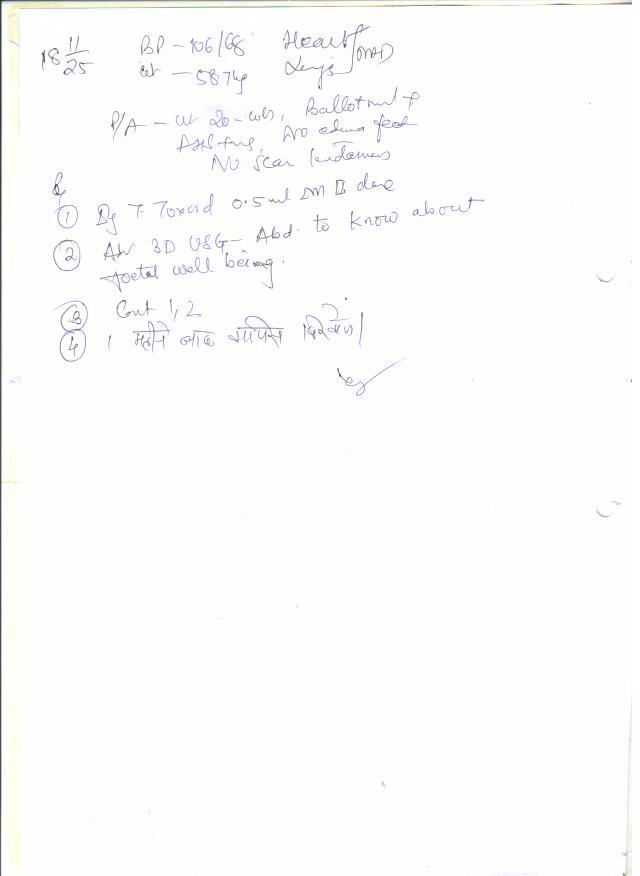 18 11/25 BP - 106/68 Heart
wt - 58 kg Lungs } NAD
P/A - ut 20 - wks, Ballotment +
FHS +ng, No edema feet
No scar tenderness
Rx
① Inj T. Toxoid 0.5 ml IM II done
② Adv 3D USG - Abd. to know about
foetal well being.
③ Cont 1, 2
④ 1 महीने बाद वापिस